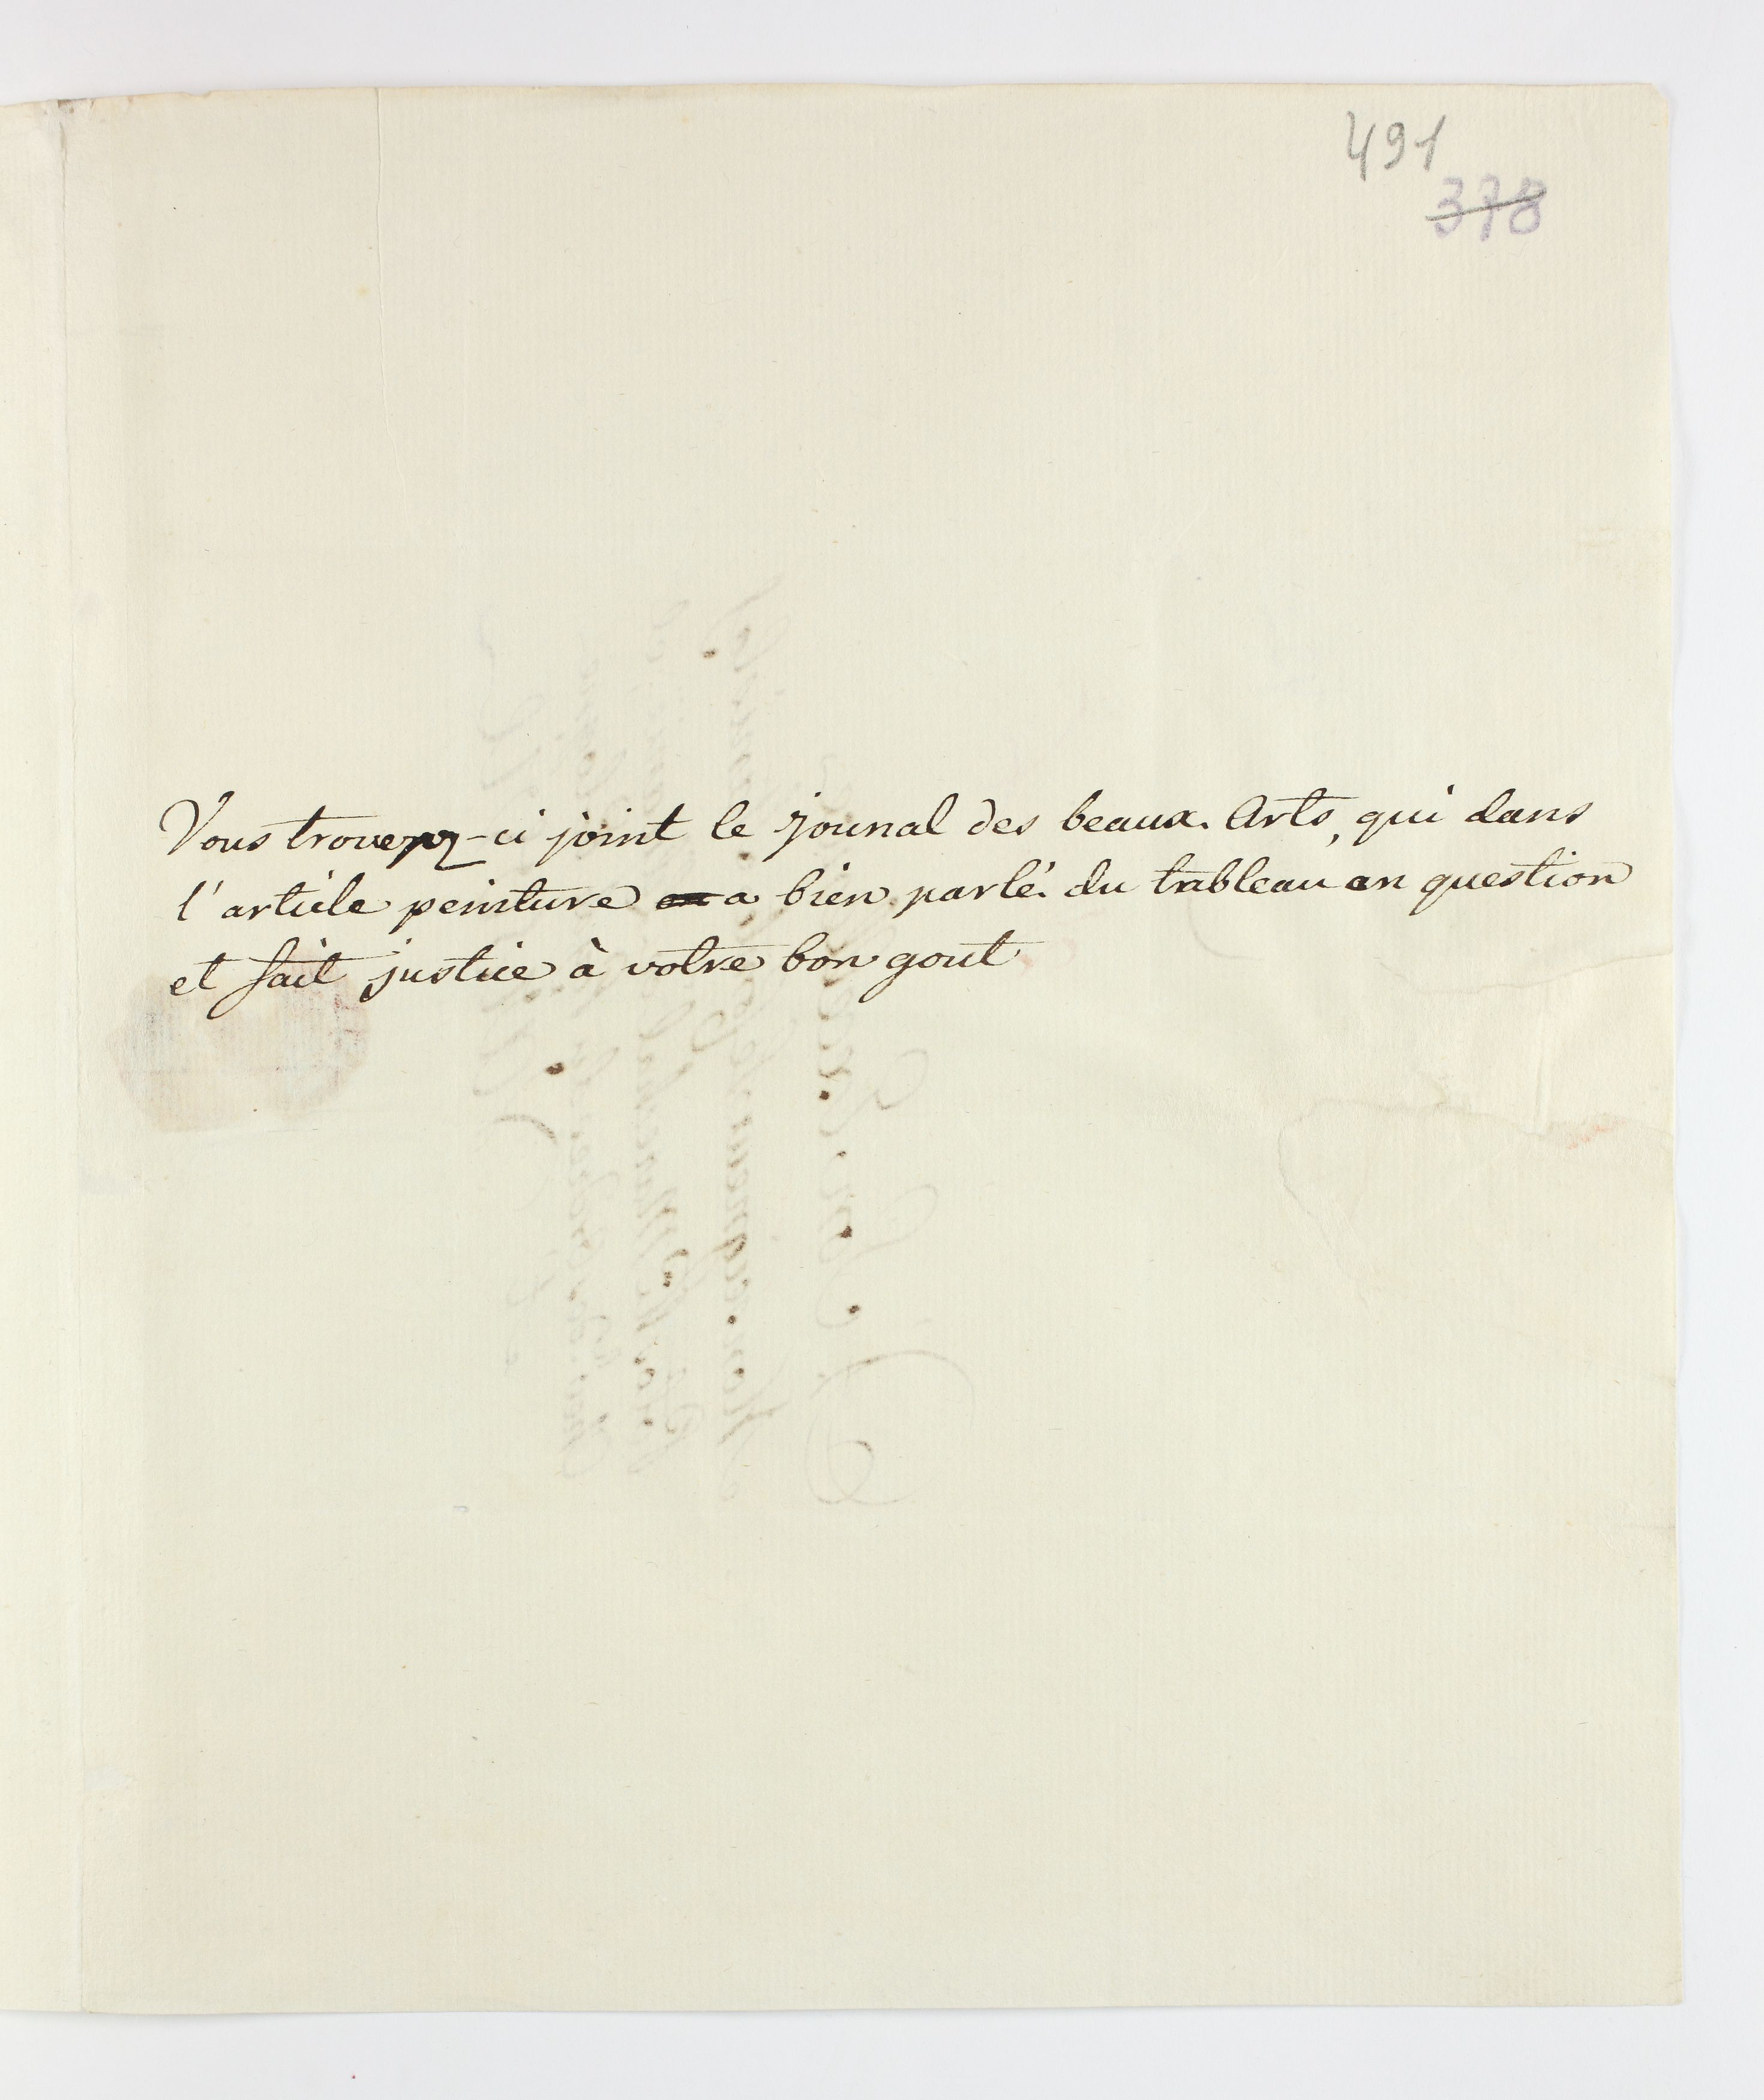 491
378
Vous troverez-ci joint le jounal des beaux. Arts, qui dans
l'article peinture a bien parlé du tableau en question
et fait justice à votre bon gout